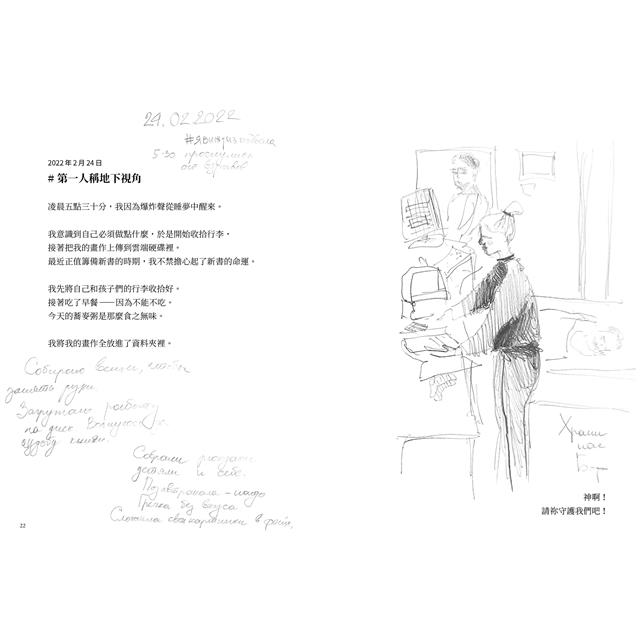 24.02.2022
5:30 проснулись
от взрывов
2022 年 2 月 24 日
# 第一人稱地下視角
凌晨五點三十分，我因為爆炸聲從睡夢中醒來。
我意識到自己必須做點什麼，於是開始收拾行李，
接著把我的畫作上傳到雲端硬碟裡。
最近正值籌備新書的時期，我不禁擔心起了新書的命運。
我先將自己和孩子們的行李收拾好。
接著吃了早餐——因為不能不吃。
今天的蕎麥粥是那麼食之無味。
我將我的畫作全放進了資料夾裡。
Собираю вещи, чтобы
занять руки.
Загружаю работы
на диск. Волнуюсь за
судьбу книги.
Собрали рюкзаки
детям и себе.
Позавтракала - надо
Гречка без вкуса
Сложила свои картинки в
22
Храни
нас
Бог
神啊！
請祢守護我們吧！